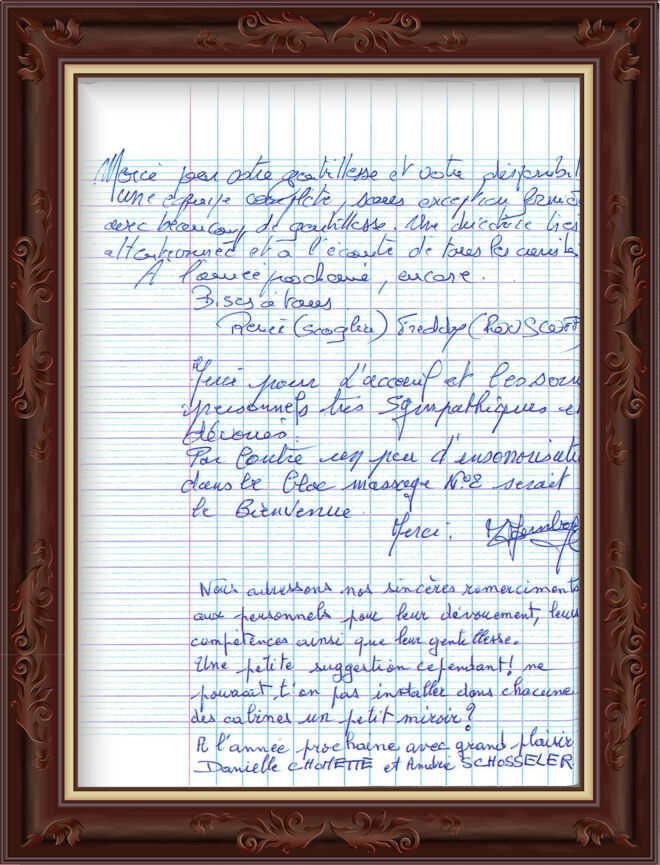 Merci pour votre gentillesse et votre disponibil
une équipe complète, sans exception
avec beaucoup de gentillesse. Une directrice très
attentionnée et à l'écoute de tous les curistes
A l'année prochaine, encore.
Bises à tous
Renée (Scoglin) Freddy (
Merci pour L'acceuil et les soins
personnels très Sympathiques et
dévoués.
Par Contre un peu d'insonorisati
dans le bloc massage N°2 serait
le Bienvenue.
Merci.
Nous adressons nos sincères remerciments
aux personnels pour leur dévouement, leurs
compétences ainsi que leur gentillesse.
Une petite suggestion cependant! ne
pourrait, t'on pas installer dans chacune
des cabines un petit miroir?
A l'année prochaine avec grand plaisir
Danielle CHOMETTE et André SCHOSSELER